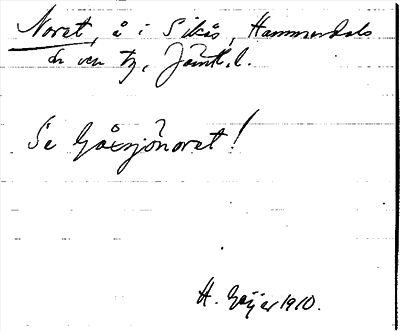 Noret, å i Sikås, Hammerdals
sn och tg, Jämtl.l.
Se Gåxsjönoret!
H. Geijer 1910.